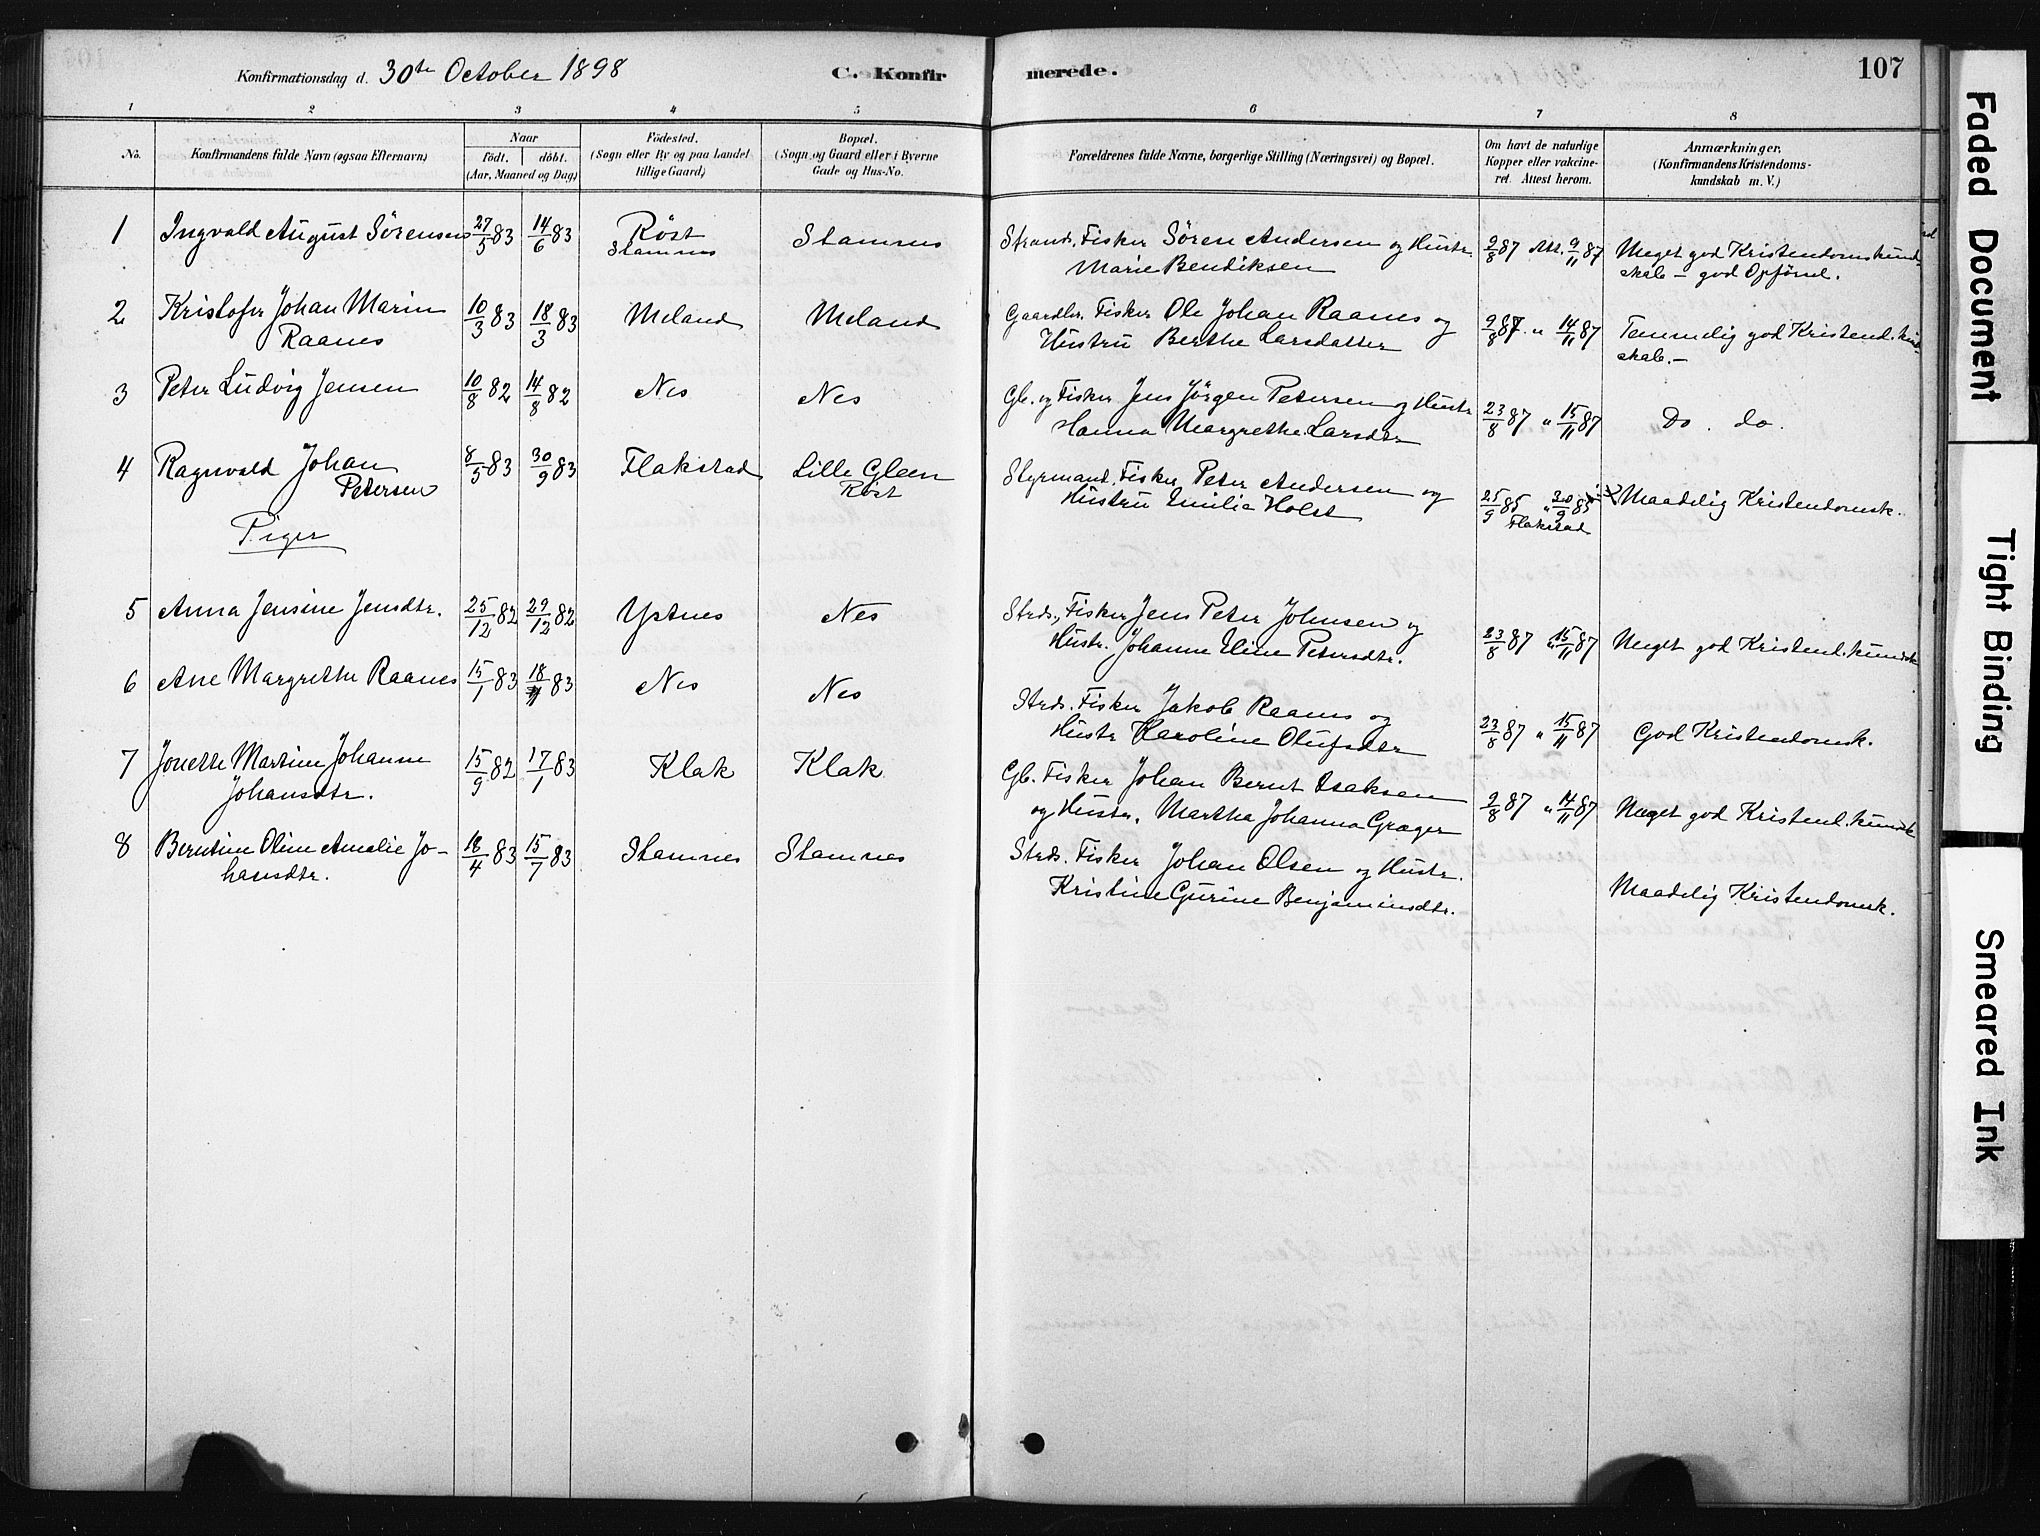 Konfirmationsdag d. 30te October 1898
C. Konfirmerede.
107
1 2 3 4 5 6 7 8
No.
Konfirmandens fulde Navn (ogsaa Efternavn)
Naar
födt. döbt.
(Aar, Maaned og Dag)
Födested.
(Sogn eller By og paa Landet
tillige Gaard)
Bopæl.
(Sogn og Gaard eller i Byerne
Gade og Hus-No.
Forældrenes fulde Navne, borgerlige Stilling (Næringsvei) og Bopæl.
Om havt de naturlige
Kopper eller vakcine-
ret. Attest herom.
Anmærkninger.
(Konfirmandens Kristendoms-
kundskab m. V.)
1 Ingvald August Sörensen 27/5 83 14/6 83 Röst Stamnes Stamnes Strands. Fisker Sören Andersen og Hustr. 9/8 87 Att. 9/11 87 Meget god Kristendomskund-
Marie Bendiksen skab – god Opförsel.
2 Kristofer Johan Marin 10/3 83 18/3 83 Meland Meland Gaardbr. Fisker Ole Johan Raanes og 9/8 87 " 14/11 87 Temmelig god Kristend.kund-
Raanes Hustru Berthe Larsdatter skab. –
3 Peter Ludvig Jensen 10/8 82 14/8 82 Nes Nes Gb. og Fisker Jens Jörgen Petersen og Hustr. 23/8 87 " 15/11 87 Do. do.
Hanna Margrethe Larsdtr
4 Ragnvald Johan 8/5 83 30/9 83 Flakstad Lille Gleen Styrmand. Fisker Peter Andersen og 25/9 85 " 30/9 85 Maadelig Kristendomsk.
Petersen Röst Hustru Emilie Holst Flakstad
Piger
5 Anna Jensine Jensdtr. 25/12 82 29/12 82 Ystnes Nes Strds., Fisker Jens Peter Johnsen og 23/8 87 " 15/11 87 Meget god Kristend.kundsk
Hustr. Johanne Eline Petersdtr.
6 Ane Margrethe Raanes 15/1 83 18/ 83 Nes Nes Strds. Fisker Jakob Raanes og 23/8 87 " 15/11 87 God Kristendomsk.
Hustr Karoline Olufsdtr
7 Jonette Martine Johanne 15/9 82 17/1 83 Klak Klak Gb. Fisker Johan Bernt Isaksen 9/8 87 " 14/11 87 Meget god Kristend.kundsk
Johansdtr. og Hustr. Martha Johanna Græger
8 Berntine Oline Amalie Jo- 18/4 83 15/7 83 Stamnes Stamnes Strds. Fisker Johan Olsen og Hustr.
hansdtr. Kristine Gurine Benjaminsdtr. Maadelig Kristendomsk.
Faded Document
Tight Binding
Smeared Ink